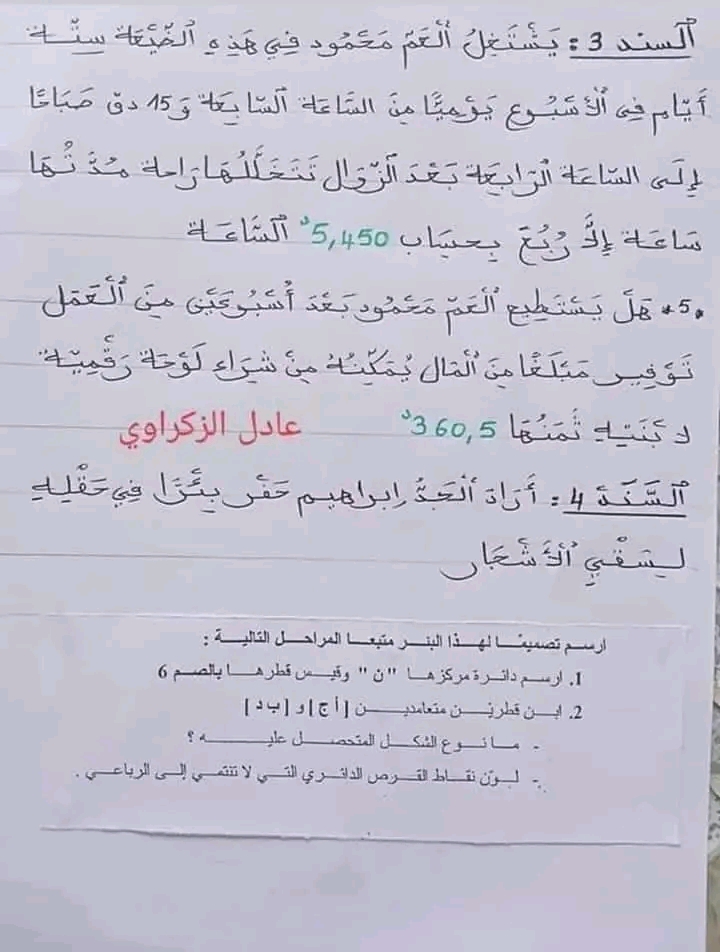 اَلسند 3 : يَشْتَغِلُ اَلْعَمّ مَحْمُود فِي هَذِهِ اَلضَّيْعَة سِتَّة
أَيّام فِي اَلْأُسْبُوع يَوْمِيًّا مِنَ السَّاعَة اَلسَّابِعَة وَ15 دق صَبَاحًا
إِلَى السَّاعَة اَلرَّابِعَة بَعْدَ اَلزَّوَال تَتَخَلَّلُهَا رَاحة مُدَّتُهَا
سَاعَة إِلاَّ رُبُعَ بِحِسَاب 5,450د اَلسَّاعَة
5. هَلْ يَسْتَطِيع اَلْعَمّ مَحْمُود بَعْدَ أُسْبُوعَيْن مِنَ اَلْعَمَل
تَوْفِير مَبْلَغًا مِنَ اَلْمَال يُمَكِّنُهُ مِنْ شِرَاء لَوْحَة رَقْمِيَّة
لابْنَتِهِ ثَمَنُهَا 360,5د
عادل الزكراوي
اَلسَّنَدْ 4 : أَرَادَ اَلْجَدُّ إِبراهيم حَفْر بِئْرًا فِي حَقْلِهِ
لِسَقْيِ اَلْأَشْجَار
ارسم تصميمـا لهـذا البئـر متبعـا المراحـل التاليـة :
1. ارسم دائـرة مركزهـا "ن" وقيـس قطرهـا بالصم 6
2. ابـن قطريـن متعامديـن [أ ج] و [ب د]
- مـا نـوع الشكـل المتحصـل عليـه ؟
- لـون نقـاط القـرص الدائـري التـي لا تنتمـي إلـى الرباعـي .